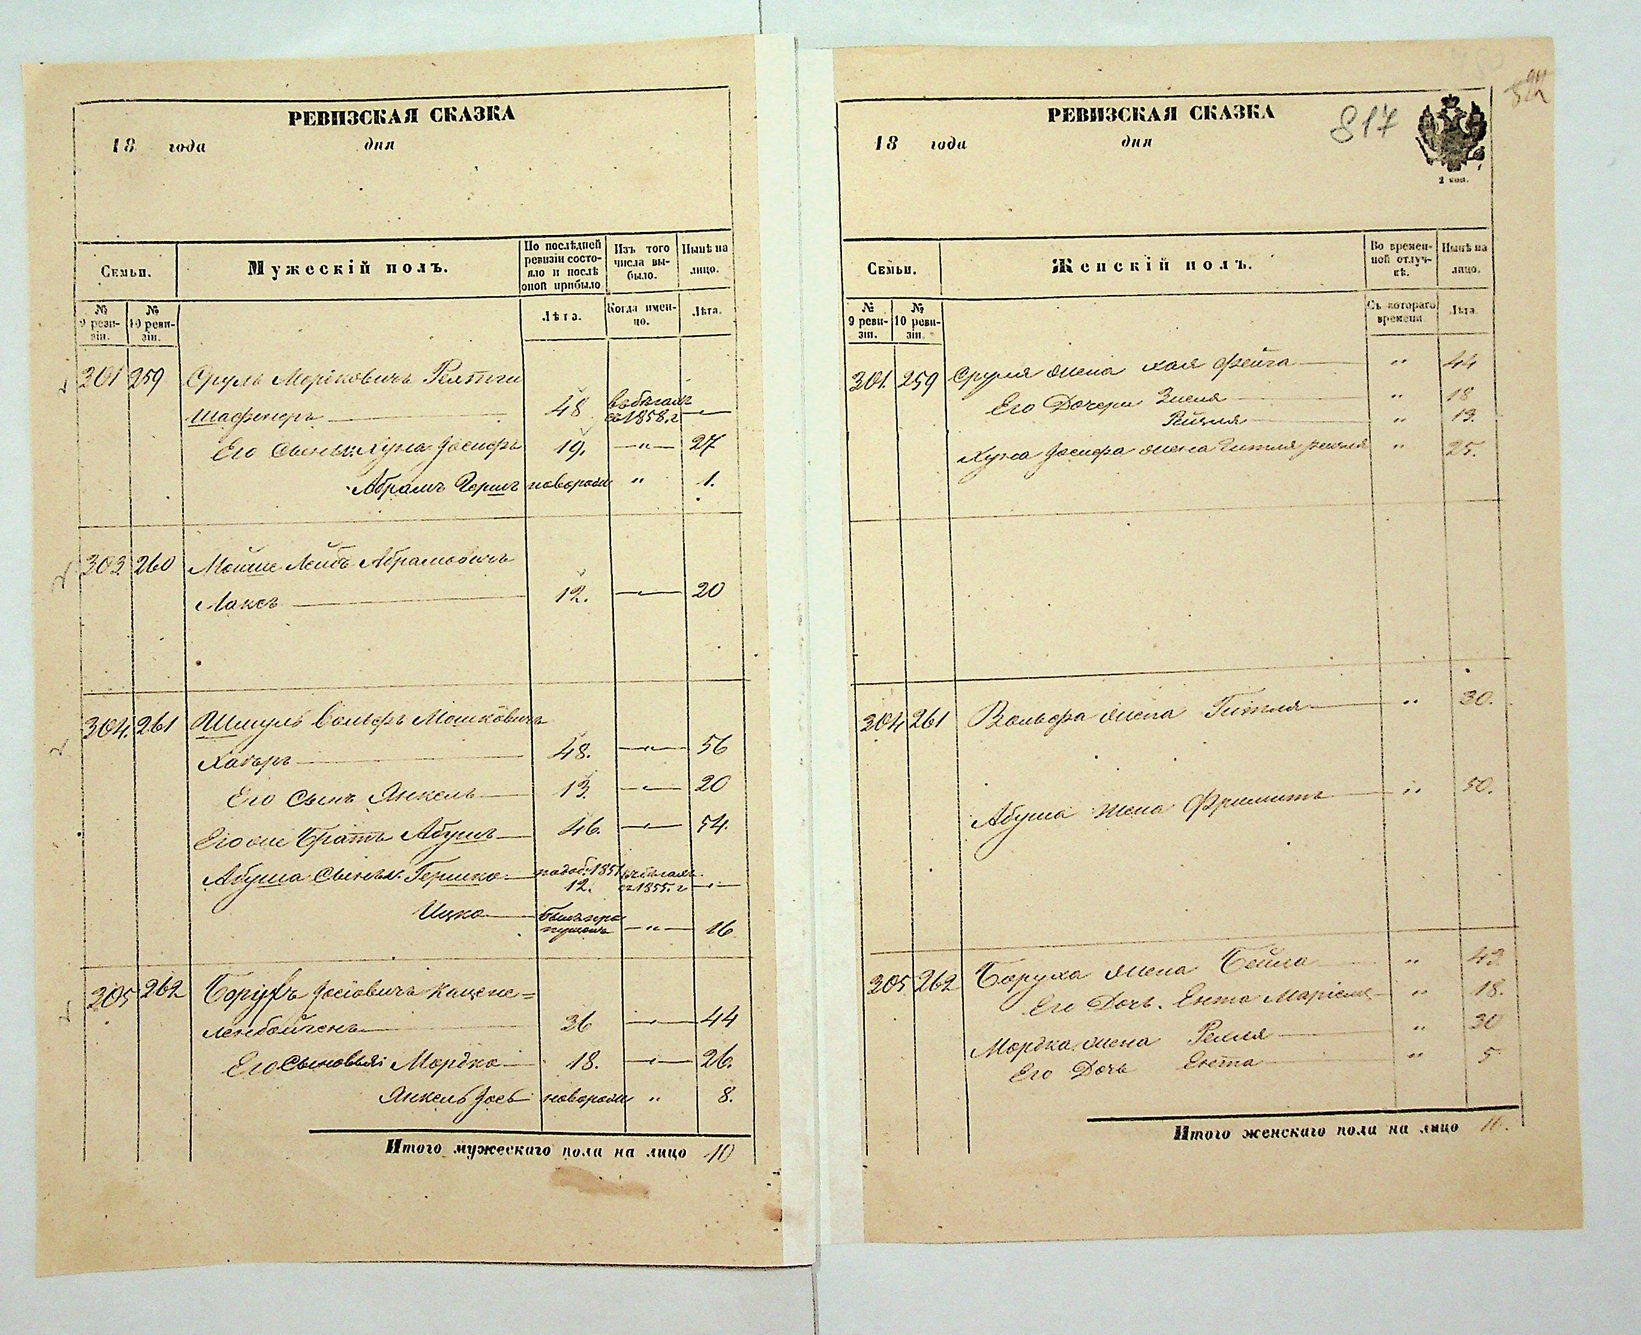 РЕВИЗСКАЯ СКАЗКА
18 года дня
Семьи.
Мужескій полъ.
По послѣдней ревизіи состояло и послѣ оной прибыло
Изъ того числа выбыло.
Нынѣ на лицо.
№ 9 ревизіи.
№ 10 ревизіи.
Лѣта.
Когда именно.
Лѣта.
301 259 Сруль Мордковичъ
48 въ бѣгахъ съ 1858. г
Его сынъ: Хуна Іосифъ 19. " 27
Абрамъ Герша новорожд " 1.
303. 260 Мойше Лейбъ Абрамовичъ
Лаксъ 12. " 20
304. 261 Шмуль Вольфъ Мошковичъ
48. " 56
Его сынъ Янкель 13. " 20
Его же братъ Абушъ 46. " 54.
Абуша сынъ: Гершко 1851 12. въ бѣгахъ съ 1855. г
Ицко былъ пропущенъ " 16
305 262 Борухъ Іосіовичъ Кацене=
ленбойгенъ 36 " 44
Его сыновья: Мордко 18. " 26.
Янкель Іосъ новорожд " 8.
Итого мужескаго пола на лицо 10
817
РЕВИЗСКАЯ СКАЗКА
18 года дня
2 коп.
Семьи.
Женскій полъ.
Во временной отлучкѣ.
Нынѣ на лицо.
№ 9 ревизіи.
№ 10 ревизіи.
Съ котораго времени
Лѣта
301. 259 Сруля жена Хая Фейга " 44
Его дочери " 18
Рейзля " 13.
Хуна Іосифа жена Гитля " 25.
304 261 Вольфа жена Гитля " 30.
Абуша жена " 50.
305 262 Боруха жена Бейла " 43
Его дочь. Ента " 18.
Мордка жена " 30
Его дочь Ента " 5
Итого женскаго пола на лицо 10.